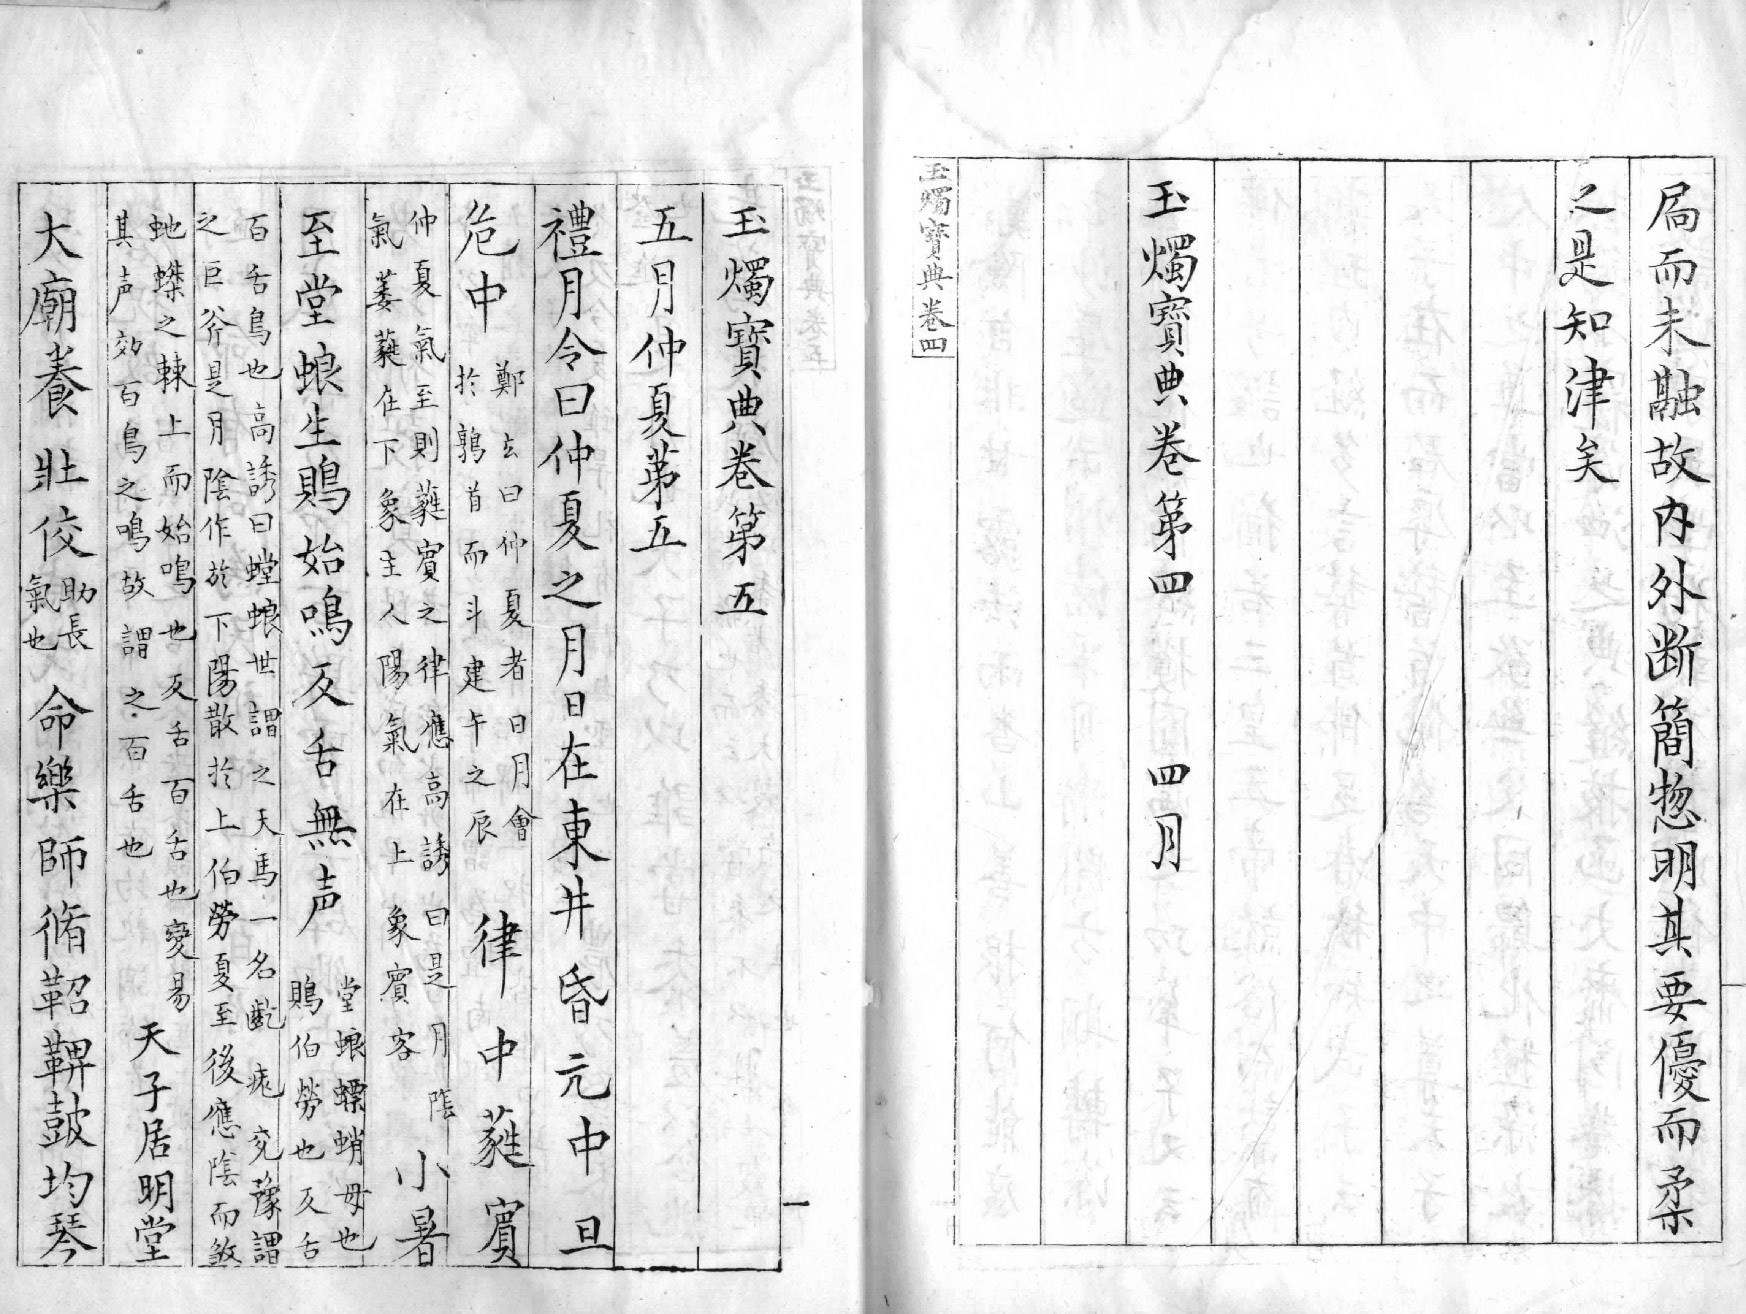 局而未融故内外断簡惣明其要優而柔
之是知津矣
玉燭寶典卷第四　四月
玉燭寶典卷四
玉燭寶典卷第五
五月仲夏第五
禮月令曰仲夏之月日在東井昏亢中旦
危中
鄭玄曰仲夏者日月會
於鶉首而斗建午之辰
律中蕤賓
仲夏氣至則蕤賓之律應高誘曰是月陰
氣萎蕤在下象主人陽氣在上象賓客
小暑
至堂蜋生鵙始鳴反舌無声
堂蜋螵蛸母也
鵙伯勞也反舌
百舌鳥也高誘曰螳蜋世謂之天馬一名齕疣兖豫謂
之巨斧是月陰作於下陽散於上伯勞夏至後應陰而煞
虵蟍之棘上而始鳴也反舌百舌也變易
其声効百鳥之鳴故謂之百舌也
天子居明堂
大廟養壯佼
助長
氣也
命樂師脩鞀鞞鼓均琴